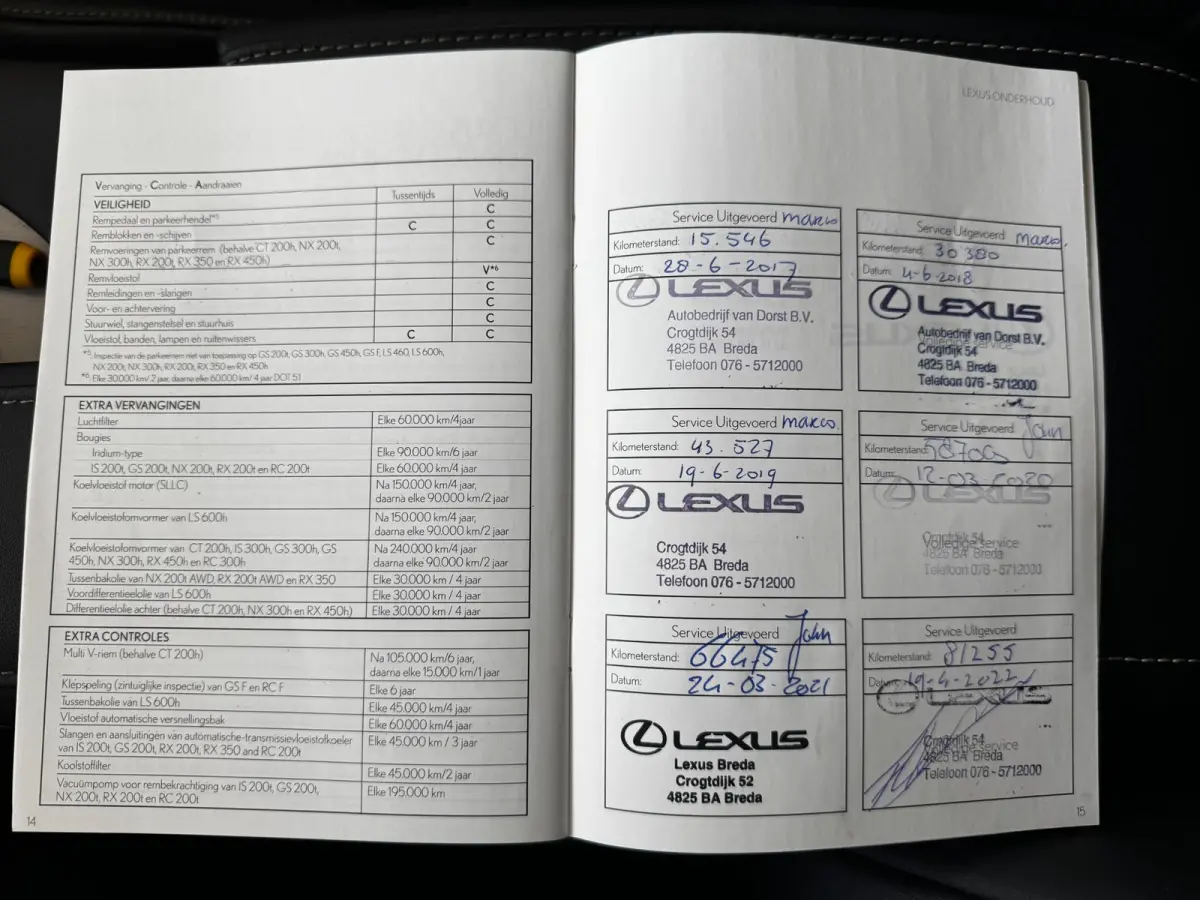 Vervanging - Controle - Aandraaien
VEILIGHEID Tussentijds Volledig
Rempedaal en parkeerhendel*5 C
Remblokken en -schijven C C
Remvoeringen van parkeerrem (behalve CT 200h, NX 200t, C
NX 300h, RX 200t, RX 350 en RX 450h)
Remvloeistof V*6
Remleidingen en -slangen C
Voor- en achtervering C
Stuurwiel, stangenstelsel en stuurhuis C
Vloeistof, banden, lampen en ruitenwissers C C
*5: Inspectie van de parkeerrem niet van toepassing op GS 200t, GS 300h, GS 450h, GS F, LS 460, LS 600h,
NX 200t, NX 300h, RX 200t, RX 350 en RX 450h
*6: Elke 30.000 km/ 2 jaar, daarna elke 60.000 km/ 4 jaar DOT 5.1
EXTRA VERVANGINGEN
Luchtfilter Elke 60.000 km/4 jaar
Bougies
Iridium-type Elke 90.000 km/6 jaar
IS 200t, GS 200t, NX 200t, RX 200t en RC 200t Elke 60.000 km/4 jaar
Koelvloeistof motor (SLLC) Na 150.000 km/4 jaar,
daarna elke 90.000 km/2 jaar
Koelvloeistofomvormer van LS 600h Na 150.000 km/4 jaar,
daarna elke 90.000 km/2 jaar
Koelvloeistofomvormer van CT 200h, IS 300h, GS 300h, GS Na 240.000 km/4 jaar
450h, NX 300h, RX 450h en RC 300h daarna elke 90.000 km/2 jaar
Tussenbakolie van NX 200t AWD, RX 200t AWD en RX 350 Elke 30.000 km / 4 jaar
Voordifferentieelolie van LS 600h Elke 30.000 km / 4 jaar
Differentieelolie achter (behalve CT 200h, NX 300h en RX 450h) Elke 30.000 km / 4 jaar
EXTRA CONTROLES
Multi V-riem (behalve CT 200h) Na 105.000 km/6 jaar,
daarna elke 15.000 km/1 jaar
Klepspeling (zintuiglijke inspectie) van GS F en RC F Elke 6 jaar
Tussenbakolie van LS 600h Elke 45.000 km/4 jaar
Vloeistof automatische versnellingsbak Elke 60.000 km/4 jaar
Slangen en aansluitingen van automatische-transmissievloeistofkoeler Elke 45.000 km / 3 jaar
van IS 200t, GS 200t, RX 200t, RX 350 and RC 200t
Koolstoffilter Elke 45.000 km/2 jaar
Vacuümpomp voor rembekrachtiging van IS 200t, GS 200t, Elke 195.000 km
NX 200t, RX 200t en RC 200t
14
LEXUS ONDERHOUD
Service Uitgevoerd Marco
Kilometerstand: 15.546
Datum: 28-6-2017
LEXUS
Autobedrijf van Dorst B.V.
Crogtdijk 54
4825 BA Breda
Telefoon 076 - 5712000
Service Uitgevoerd Marco.
Kilometerstand: 30 380
Datum: 4-6-2018
LEXUS
Autobedrijf van Dorst B.V.
Volledige service
Crogtdijk 54
4825 BA Breda
Telefoon 076 - 5712000
Service Uitgevoerd Marco.
Kilometerstand: 43.527
Datum: 19-6-2019
LEXUS
Crogtdijk 54
4825 BA Breda
Telefoon 076 - 5712000
Service Uitgevoerd John
Kilometerstand: 58700
Datum: 12-03-2020
LEXUS
Crogtdijk 54
Volledige service
4825 BA Breda
Telefoon 076 - 5712000
Service Uitgevoerd John
Kilometerstand: 66475
Datum: 24-03-2021
LEXUS
Lexus Breda
Crogtdijk 52
4825 BA Breda
Service Uitgevoerd
Kilometerstand: 81255
Datum: 19-4-2022
Crogtdijk 54
Volledige service
4825 BA Breda
Telefoon 076 - 5712000
15